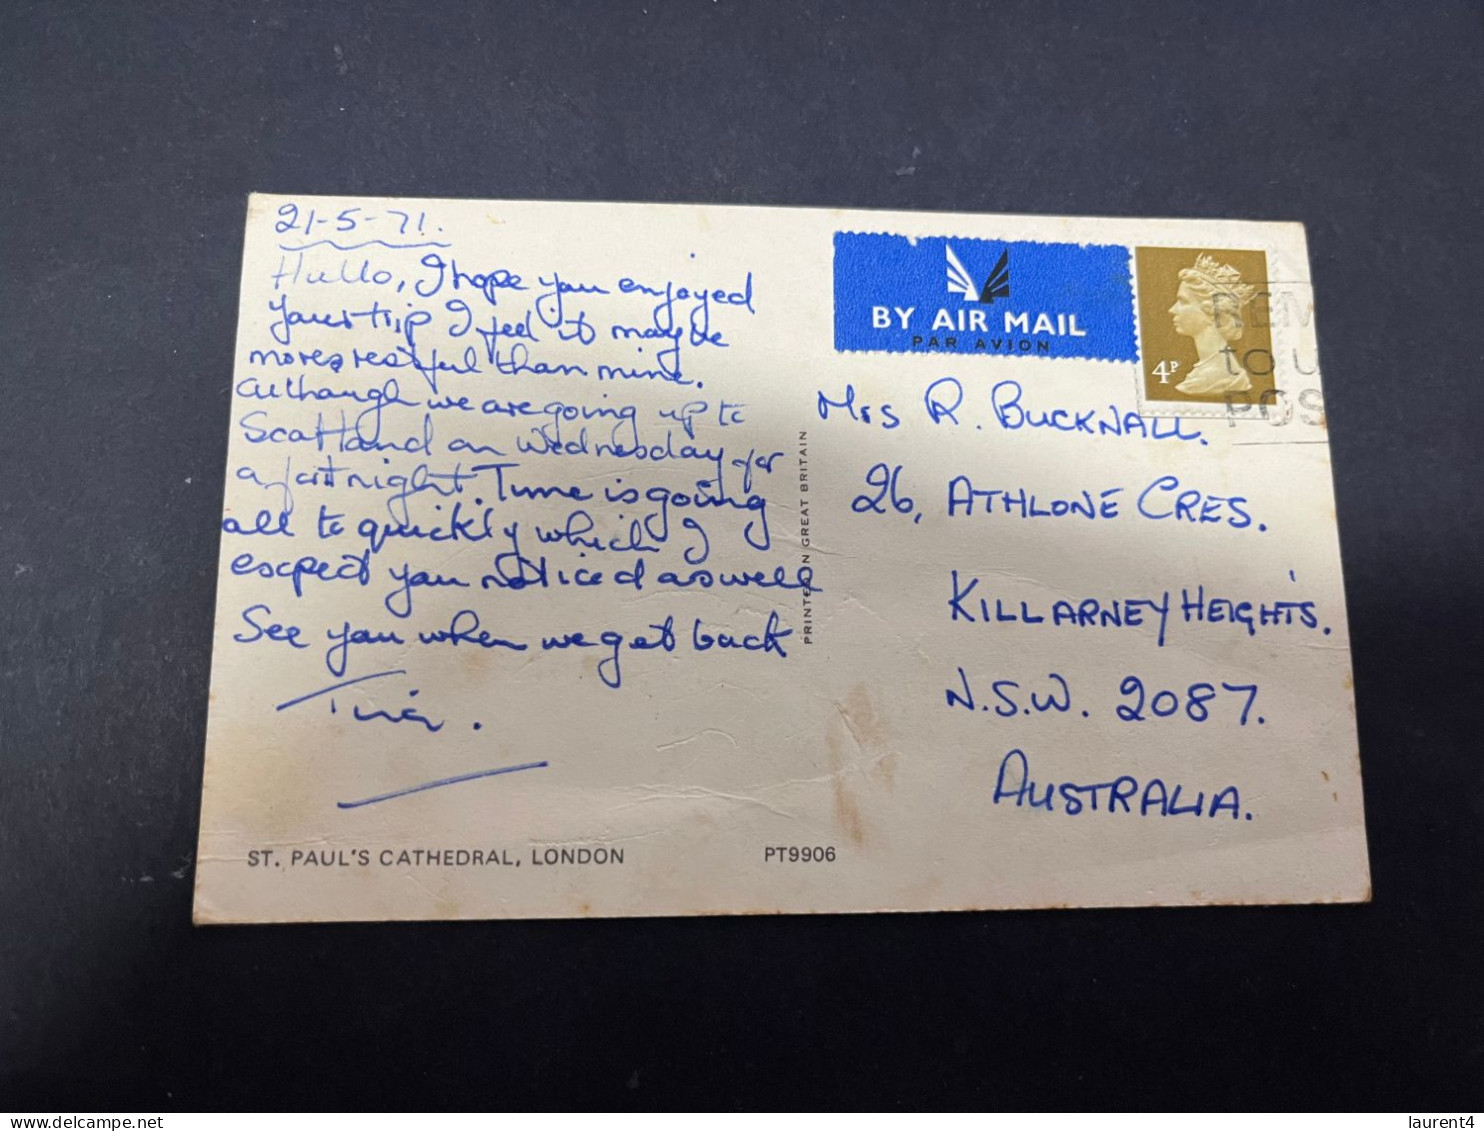 21-5-71.
Hullo, I hope you enjoyed
your trip I feel it maybe
more restful than mine.
Although we are going up to
Scotland on Wednesday for
a fortnight. Time is going
all to quickly which I
expect you noticed as well
See you when we get back
BY AIR MAIL
PAR AVION
4P
REM
to U
POS
Mrs R. BUCKNALL.
26, ATHLONE CRES.
KILLARNEY HEIGHTS.
N.S.W. 2087.
AUSTRALIA.
PRINTED IN GREAT BRITAIN
ST. PAUL'S CATHEDRAL, LONDON
PT9906
laurent4